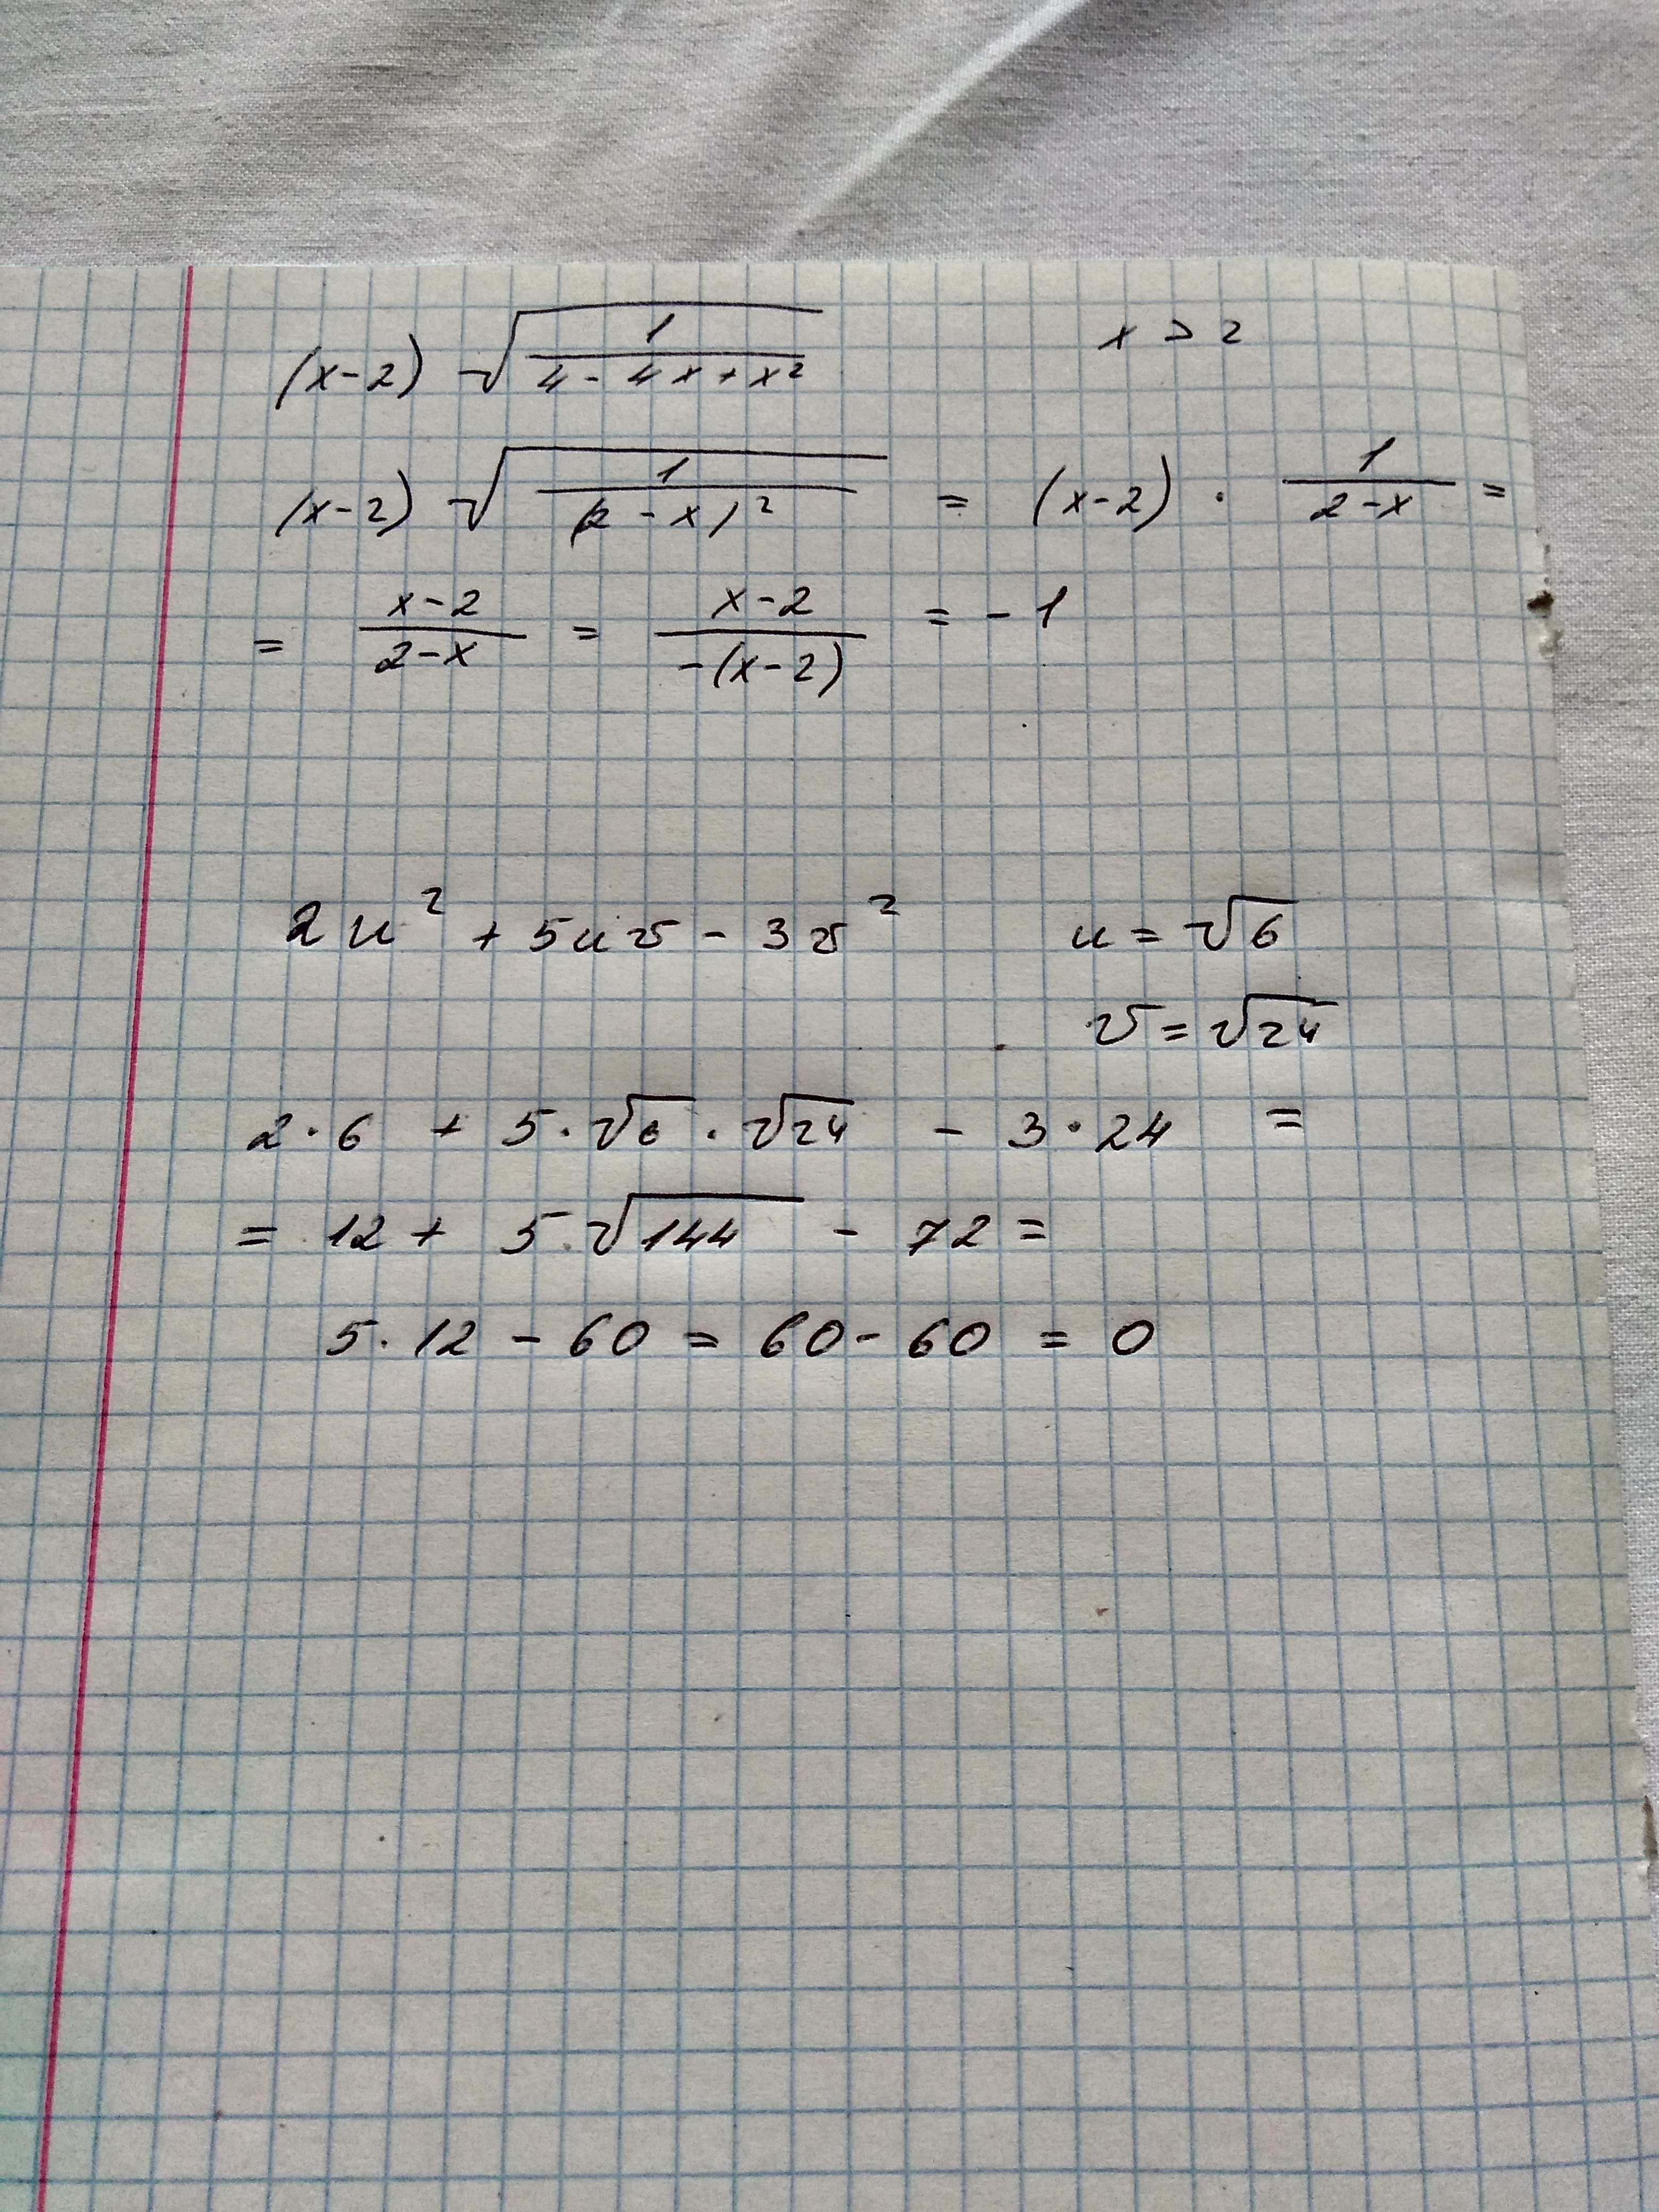 (x-2) √(1/(4-4x+x²))     x > 2
(x-2) √(1/(2-x)²) = (x-2) · 1/(2-x) =
= (x-2)/(2-x) = (x-2)/(-(x-2)) = -1
2u² + 5uv - 3v²     u = √6
v = √24
2·6 + 5·√6·√24 - 3·24 =
= 12 + 5·√144 - 72 =
5·12 - 60 = 60 - 60 = 0